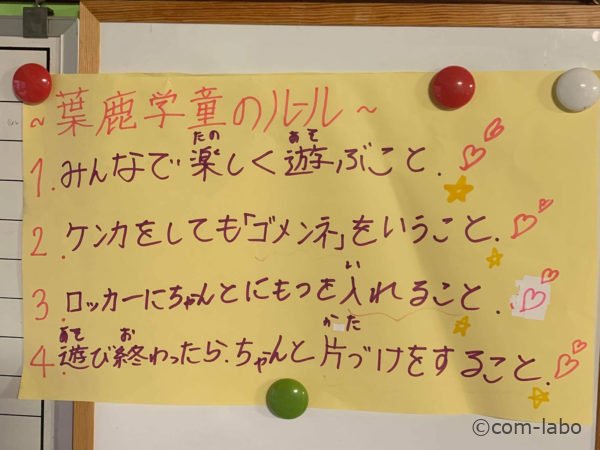 ~葉鹿学童のルール~
1. みんなで楽しく遊ぶこと.
2. ケンカをしても「ゴメンネ」をいうこと.
3. ロッカーにちゃんとにもつを入れること.
4. 遊び終わったら.ちゃんと片づけをすること.
©com-labo